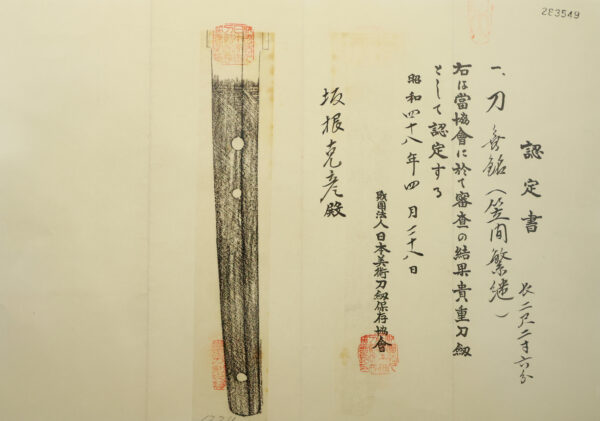 283549
認定書
一、刀 無銘（笠間繁継）
長二尺二寸六分
右は當協會に於て審査の結果貴重刀剱
として認定する
昭和四十八年四月二十八日
財團法人日本美術刀剱保存協會
坂根克彦殿